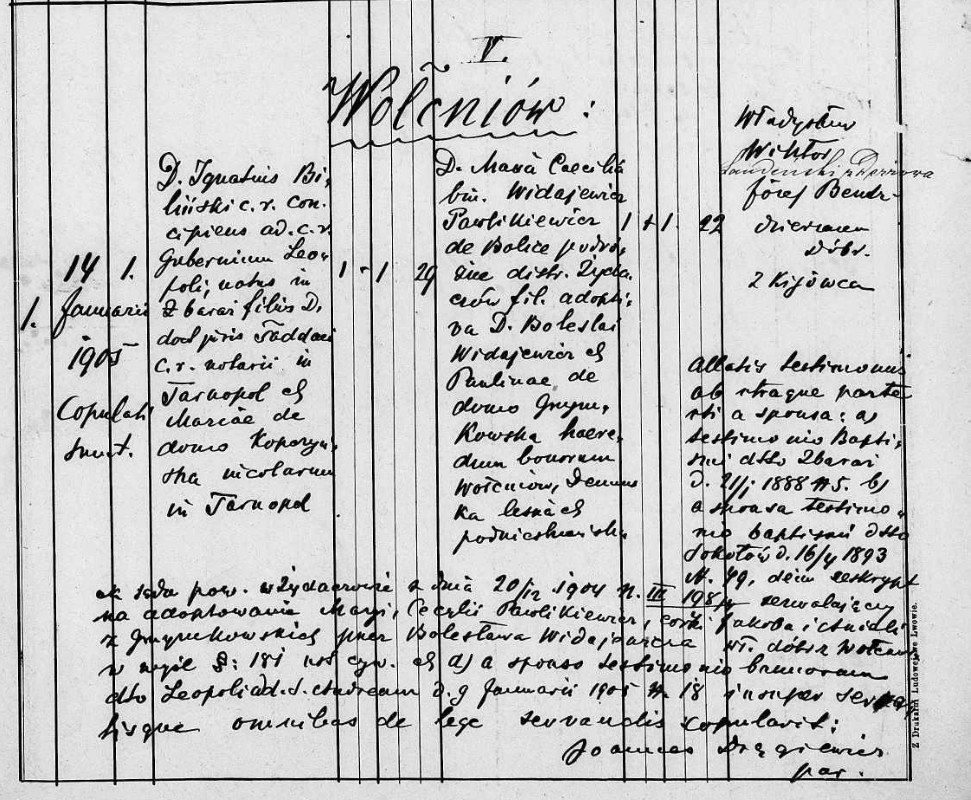 V.
Wołcniów:
1.
14 1.
Januarii
1905
Copulati
sunt.
D. Ignatius Bi-
liński c. r. con-
cipiens ad. c. r.
Gubernium Leo-
poli, natus in
Zbaraż filius D.
doct juris Taddaei
c. r. notarii in
Tarnopol et
Mariae de
domo Koparzyń-
ska incolarum
in Tarnopol
1 - 1 29
D. Maria Caecilia
bin. Widajewicz
Pawlikiewicz
de Bolice podró-
żne distr. Żyda-
czów fil. adopti-
va D. Boleslai
Widajewicz et
Paulinae de
domo
kowska haere-
dum bonorum
Wołcniów, Demen-
ka leśna et
podniestrzańska
1 + 1. 22
Władysław
Wiktor
Józef Bendz-
dzierzawca
dóbr.
z Kijówca
Allatis testimoniis
ab utraque parte
et a sponso: a)
testimonio Bapti-
smi dtto Zbaraż
d. 21/1 1888 N 5. b)
a sponsa testimo-
nio baptismi dtto
Sokołów d. 16/4 1893
N. 49, dein reskrypt
ck Sądu pow. w Żydaczowie z dnia 20/12 1904 N. III zezwalający
na adoptowanie Maryi, Cecylii Pawlikiewicz, córki Jakoba i
z przez Bolesława Widajewicza wł. dóbr Wołcniów
w myśl §: 181 ust cyw. et d) a sponso testimonio bannorum
dtto Leopoli ad. S. Andream d. 9 Januarii 1905 N. 18 insuper serva-
tisque omnibus de lege servandis copulavit:
Joannes Dręgiewicz
par.
Z Drukarni Ludowej we Lwowie.